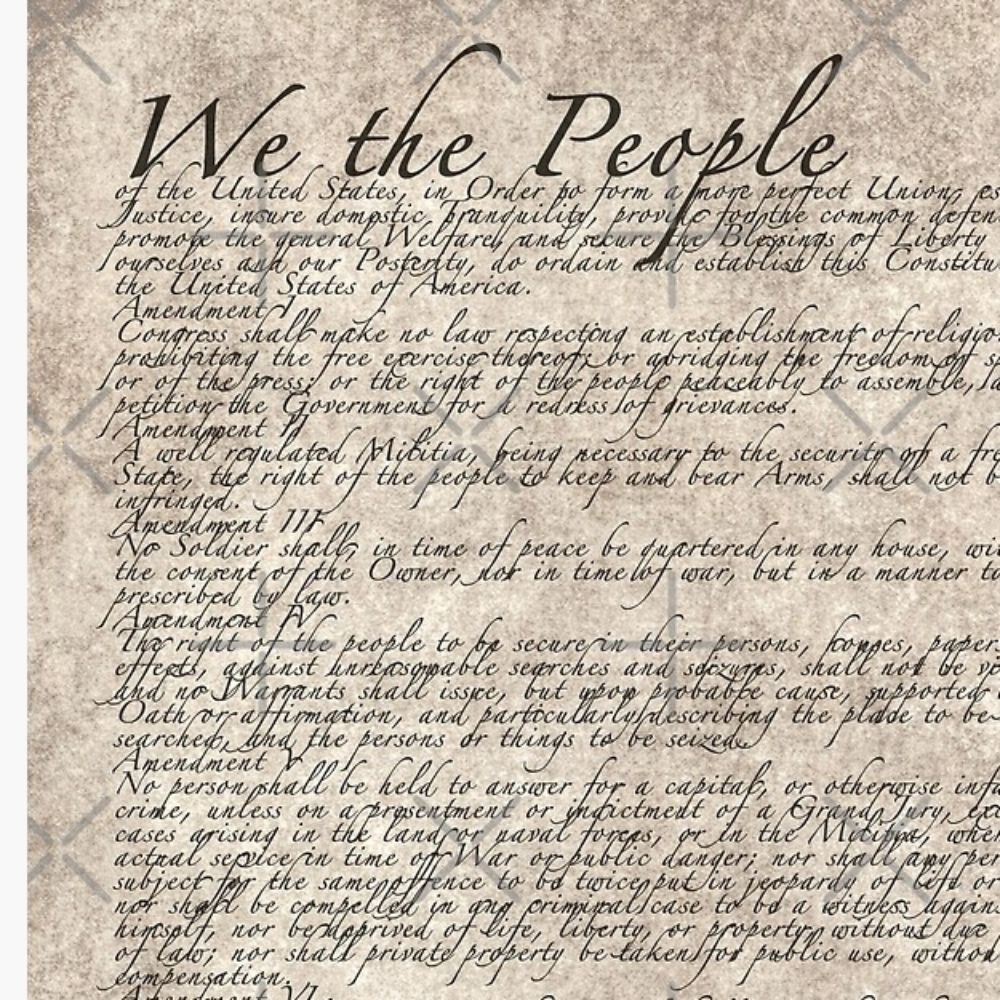 We the People
of the United States, in Order to form a more perfect Union, es
Justice, insure domestic Tranquility, provide for the common defen
promote the general Welfare, and secure the Blessings of Liberty
ourselves and our Posterity, do ordain and establish this Constitu
the United States of America.
Amendment I
Congress shall make no law respecting an establishment of religio
prohibiting the free exercise thereof; or abridging the freedom of s
or of the press; or the right of the people peaceably to assemble,
petition the Government for a redress of grievances.
Amendment II
A well regulated Militia, being necessary to the security of a fre
State, the right of the people to keep and bear Arms, shall not b
infringed.
Amendment III
No Soldier shall, in time of peace be quartered in any house, wi
the consent of the Owner, nor in time of war, but in a manner to
prescribed by law.
Amendment IV
The right of the people to be secure in their persons, houses, paper
effects, against unreasonable searches and seizures, shall not be v
and no Warrants shall issue, but upon probable cause, supported
Oath or affirmation, and particularly describing the place to be
searched, and the persons or things to be seized.
Amendment V
No person shall be held to answer for a capital, or otherwise infa
crime, unless on a presentment or indictment of a Grand Jury, exc
cases arising in the land or naval forces, or in the Militia, when
actual service in time of War or public danger; nor shall any per
subject for the same offence to be twice put in jeopardy of life or
nor shall be compelled in any criminal case to be a witness again
himself, nor be deprived of life, liberty, or property, without due
of law; nor shall private property be taken for public use, withou
compensation.
Amendment VI